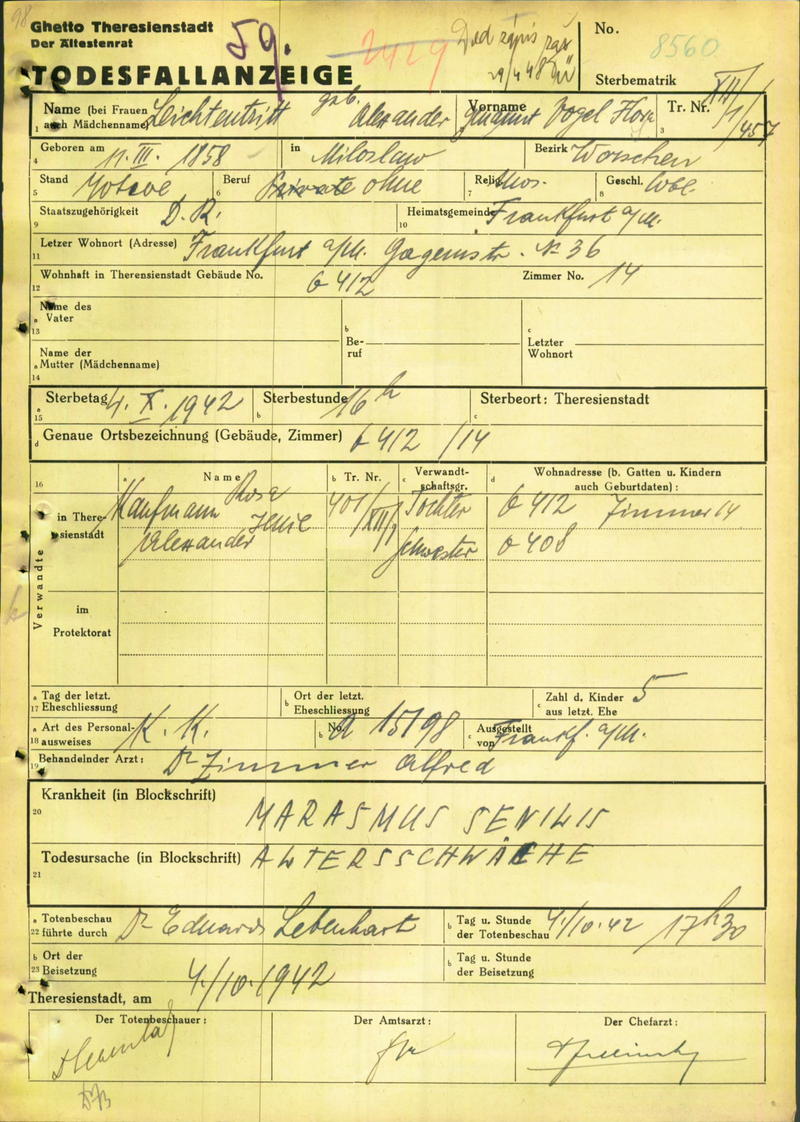 98
Ghetto Theresienstadt
Der Ältestenrat
TODESFALLANZEIGE
59.
2429
29/4 48
No.
8560
Sterbematrik
Name (bei Frauen auch Mädchenname) Leichtentritt geb. Alexander
Vorname Vogel
Tr. Nr. XII/1/457
1
3
4 Geboren am 11. III. 1858 in Miloslaw Bezirk Wreschen
5 Stand 6 Beruf ohne 7 Relig. Mos. 8 Geschl. Wbl.
9 Staatszugehörigkeit D.R. 10 Heimatsgemeinde Frankfurt a/M.
11 Letzer Wohnort (Adresse) Frankfurt a/M. Gagernstr. No 36
12 Wohnhaft in Theresienstadt Gebäude No. G 412 Zimmer No. 14
a 13 Name des Vater
b Be-ruf
c Letzter Wohnort
a 14 Name der Mutter (Mädchenname)
a 15 Sterbetag 4. X. 1942 b Sterbestunde 16 h c Sterbeort: Theresienstadt
d Genaue Ortsbezeichnung (Gebäude, Zimmer) G 412 /14
16 a Name b Tr. Nr. c Verwandt-schaftsgr. d Wohnadresse (b. Gatten u. Kindern auch Geburtdaten) :
Verwandte
in There-sienstadt
Kaufmann Rosa 401/XII/1 Tochter G 412 Zimmer 14
Alexander Schwester G 408
im Protektorat
a 17 Tag der letzt. Eheschliessung b Ort der letzt. Eheschliessung c Zahl d. Kinder aus letzt. Ehe 5
a 18 Art des Personal-ausweises K. K. b No. A 15198 c Ausgestellt von Frankf. a/M.
19 Behandelnder Arzt: Dr Zimmer Alfred
20 Krankheit (in Blockschrift) MARASMUS SENILIS
21 Todesursache (in Blockschrift) ALTERSSCHWÄCHE
a 22 Totenbeschau führte durch Dr Eduard Lebenhart b Tag u. Stunde der Totenbeschau 4./10.42 17h30
b 23 Ort der Beisetzung b Tag u. Stunde der Beisetzung
Theresienstadt, am 4./10.1942
Der Totenbeschauer: Der Amtsarzt: Der Chefarzt: